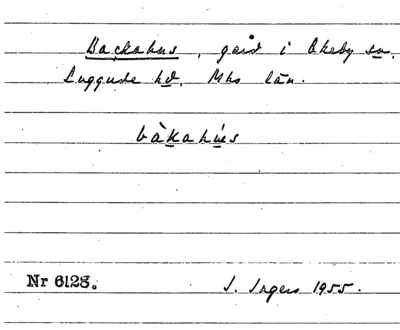 Backahus, gård i Ekeby sn.
Luggude hd. Mhs län.
bàkahús
Nr 6128.
I. Ingers 1955.